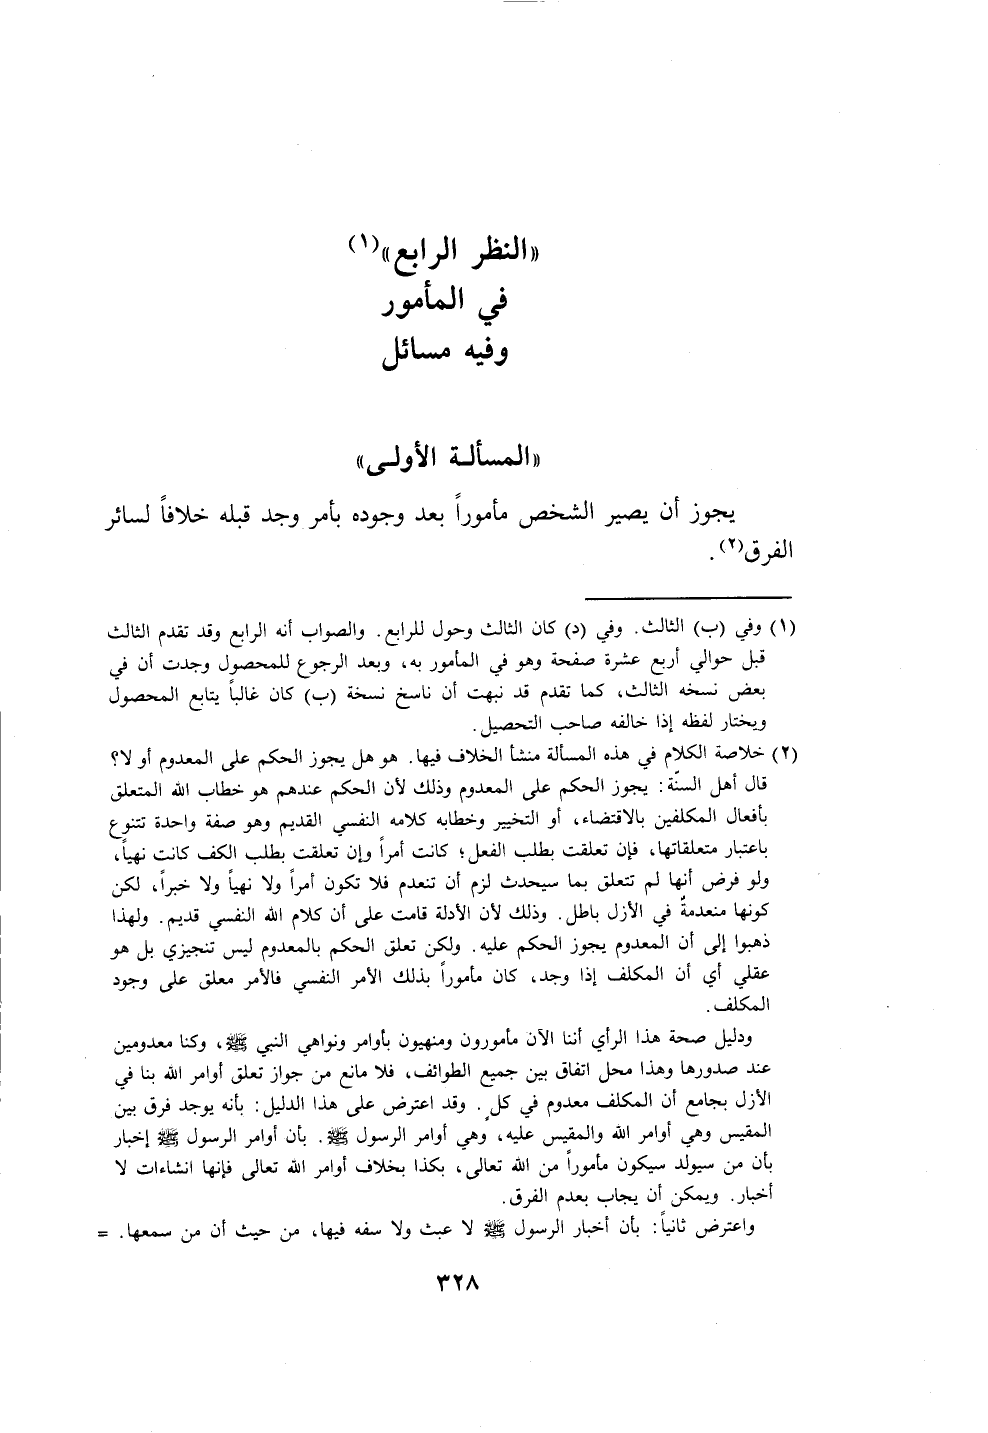 «النظر الرابع»(١)
في المأمور
وفيه مسائل
«المسألـة الأولـى»
يجوز أن يصير الشخص مأموراً بعد وجوده بأمر وجد قبله خلافاً لسائر
الفرق(٢).
(١) وفي (ب) الثالث. وفي (د) كان الثالث وحول للرابع. والصواب أنه الرابع وقد تقدم الثالث
قبل حوالي أربع عشرة صفحة وهو في المأمور به، وبعد الرجوع للمحصول وجدت أن في
بعض نسخه الثالث، كما تقدم قد نبهت أن ناسخ نسخة (ب) كان غالباً يتابع المحصول
ويختار لفظه إذا خالفه صاحب التحصيل.
(٢) خلاصة الكلام في هذه المسألة منشأ الخلاف فيها. هو هل يجوز الحكم على المعدوم أو لا؟
قال أهل السنّة: يجوز الحكم على المعدوم وذلك لأن الحكم عندهم هو خطاب الله المتعلق
بأفعال المكلفين بالاقتضاء، أو التخيير وخطابه كلامه النفسي القديم وهو صفة واحدة تتنوع
باعتبار متعلقاتها، فإن تعلقت بطلب الفعل؛ كانت أمراً وإن تعلقت بطلب الكف كانت نهياً،
ولو فرض أنها لم تتعلق بما سيحدث لزم أن تنعدم فلا تكون أمراً ولا نهياً ولا خبراً، لكن
كونها منعدمةٌ في الأزل باطل. وذلك لأن الأدلة قامت على أن كلام الله النفسي قديم. ولهذا
ذهبوا إلى أن المعدوم يجوز الحكم عليه. ولكن تعلق الحكم بالمعدوم ليس تنجيزي بل هو
عقلي أي أن المكلف إذا وجد، كان مأموراً بذلك الأمر النفسي فالأمر معلق على وجود
المكلف.
ودليل صحة هذا الرأي أننا الآن مأمورون ومنهيون بأوامر ونواهي النبي ﷺ، وكنا معدومين
عند صدورها وهذا محل اتفاق بين جميع الطوائف، فلا مانع من جواز تعلق أوامر الله بنا في
الأزل بجامع أن المكلف معدوم في كلٍ. وقد اعترض على هذا الدليل: بأنه يوجد فرق بين
المقيس وهي أوامر الله والمقيس عليه، وهي أوامر الرسول ﷺ. بأن أوامر الرسول ﷺ إخبار
بأن من سيولد سيكون مأموراً من الله تعالى، بكذا بخلاف أوامر الله تعالى فإنها انشاءات لا
أخبار. ويمكن أن يجاب بعدم الفرق.
واعترض ثانياً: بأن أخبار الرسول ﷺ لا عبث ولا سفه فيها، من حيث أن من سمعها. =
٣٢٨